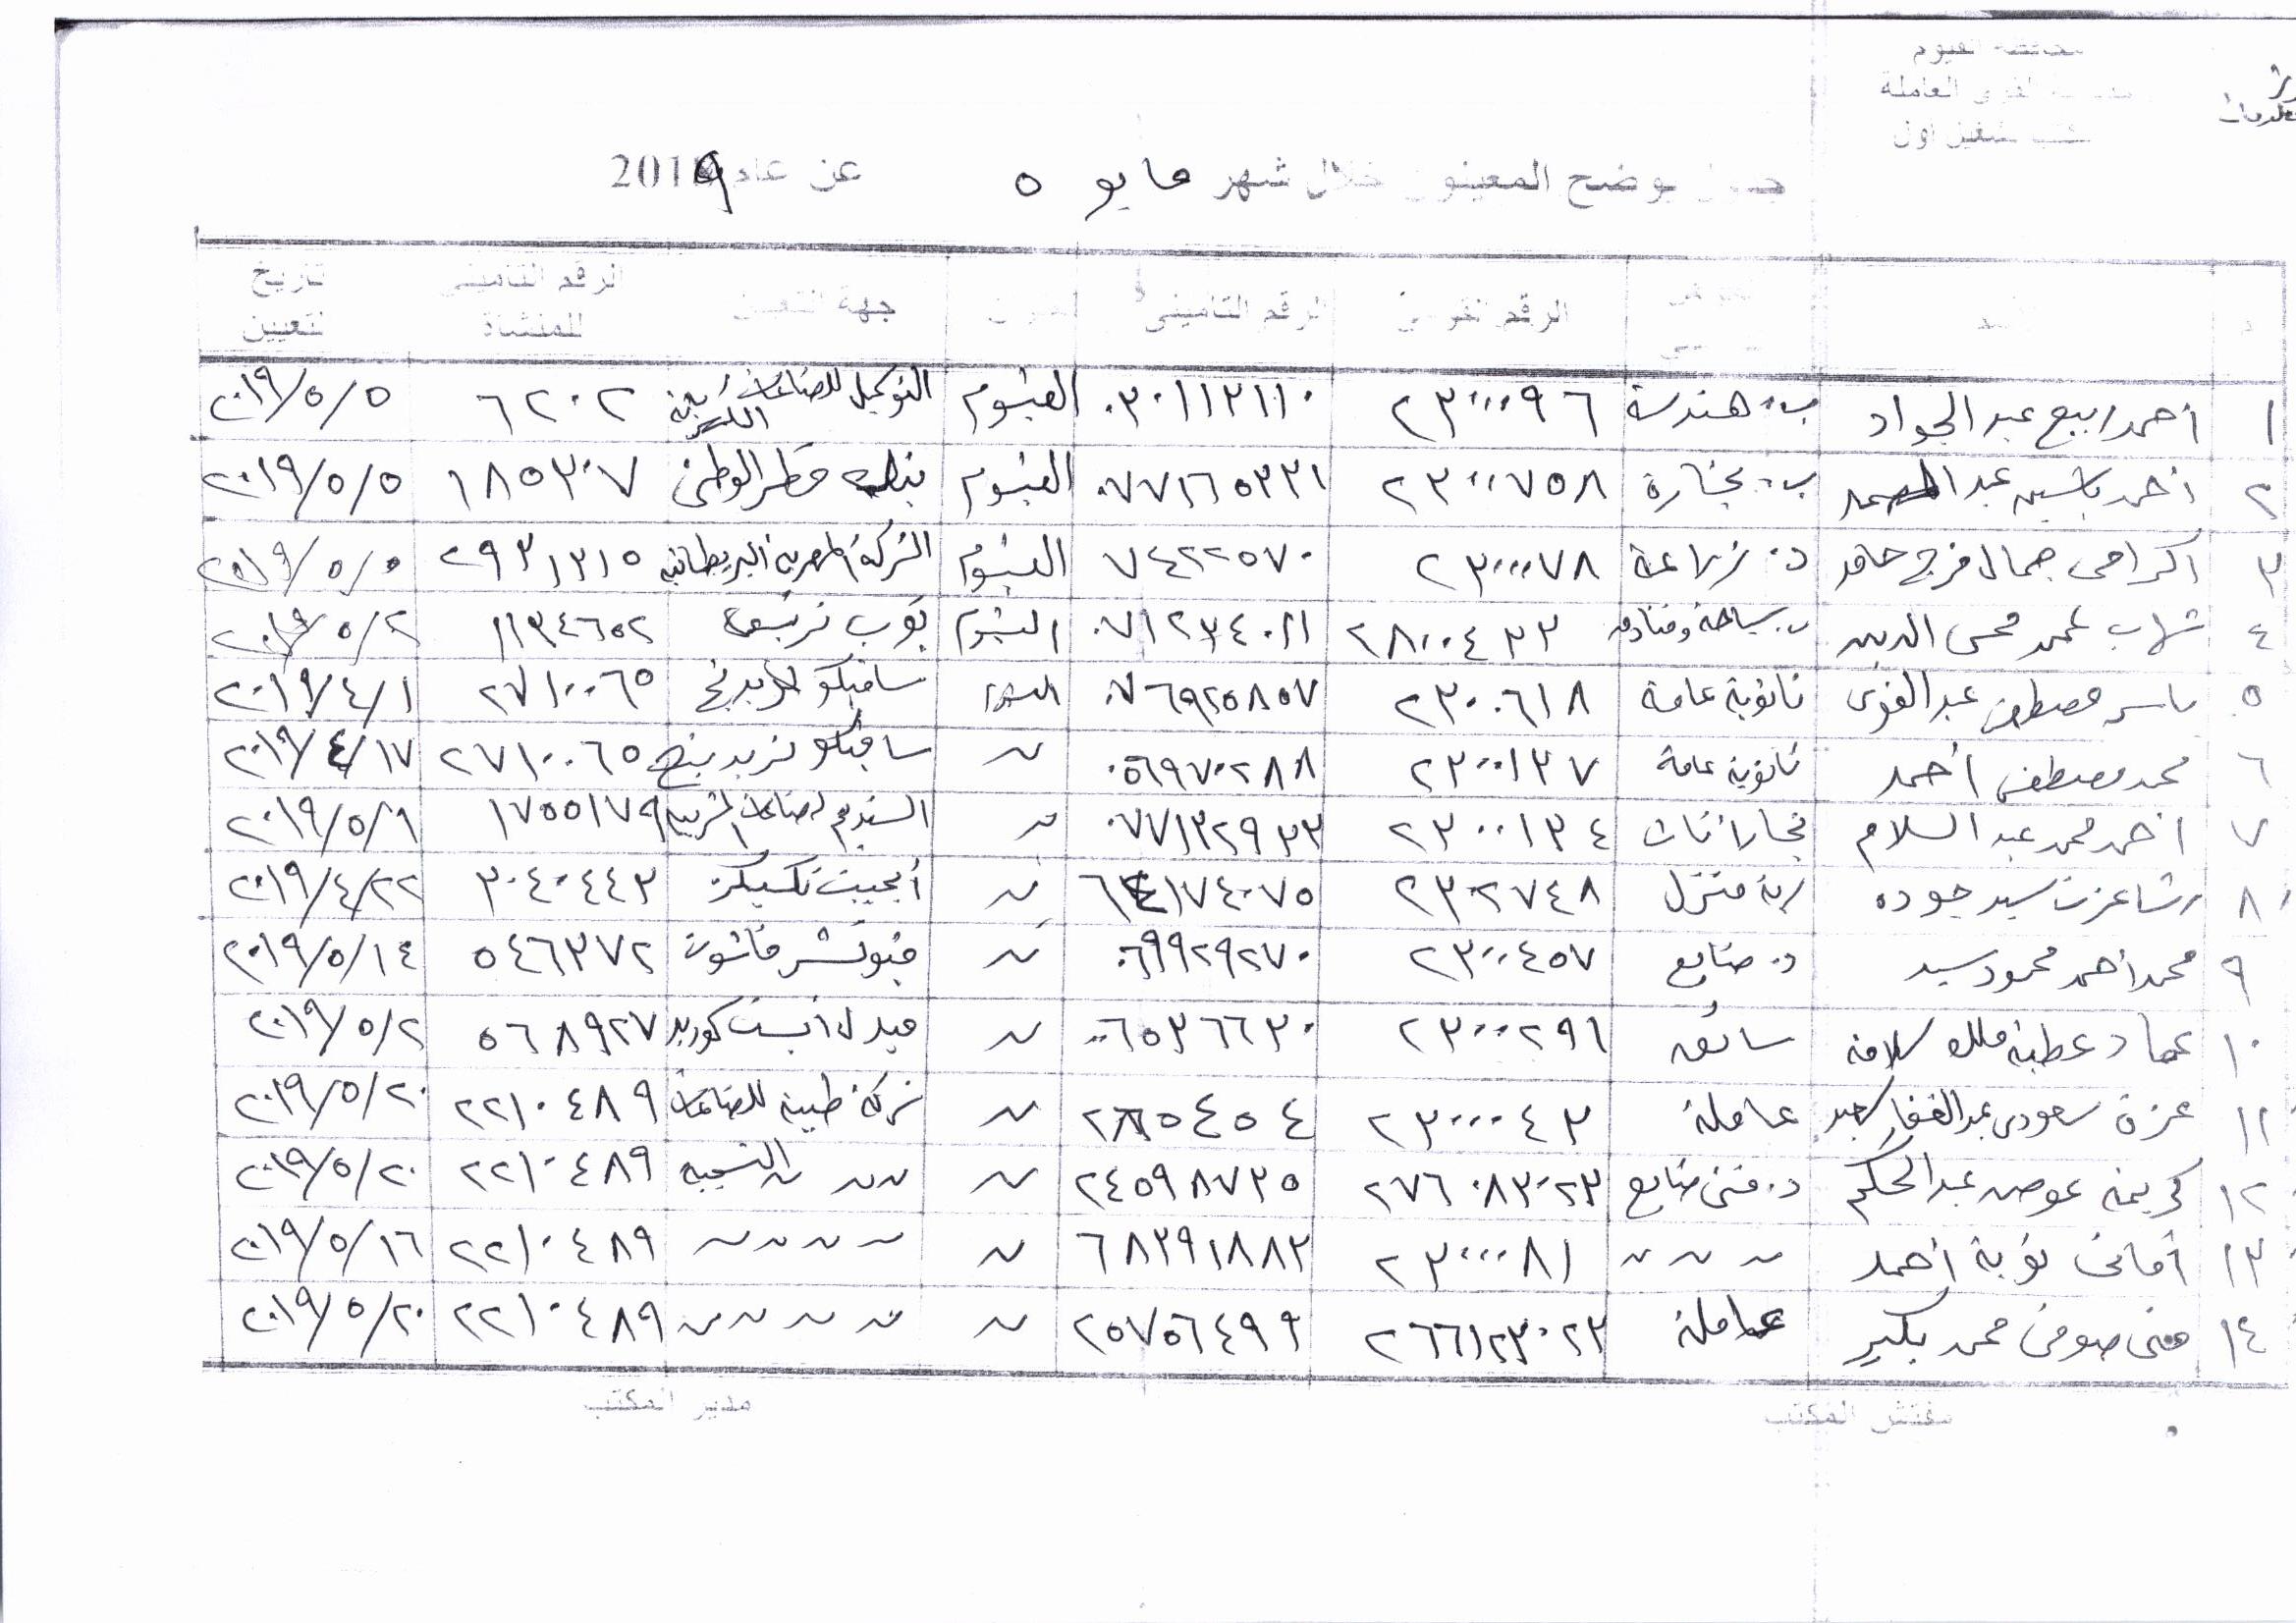 محافظة الفيوم
مديرية القوى العاملة
مكتب تشغيل اول
جدول يوضح المعينون خلال شهر مايو ٥ عن عام 2019
م الاسم الرقم القومي الرقم التاميني العنوان جهة التعيين الرقم التاميني للمنشأة تاريخ التعيين
١ احمد ربيع عبد الجواد ب. هندسة ٢٣٠٠٠٠٩٦ ٠٣٠١١٣١١٠ الفيوم التوكيل للصناعات ٦٢٠٢ ٢٠١٩/٥/٥
٢ احمد ياسين عبد الصمد ب. تجارة ٢٣٠٠٠٧٥٨ ٠٧٧١٦٥٣٣١ الفيوم بنك قطر الوطنى ١٨٥٣٠٧ ٢٠١٩/٥/٥
٣ اكرامى جمال فرج حامد د. زراعة ٢٣٠٠٠٠٧٨ ٧٤٢٢٥٧٠ الفيوم الشركة المصرية البريطانية ٢٩٣١٣١٥ ٢٠١٩/٥/٥
٤ شهاب محمد محى الدين ب. سياحة وفنادق ٢٨٠٠٠٤٣٣ ٠٧١٢٣٤٠١١ الفيوم ١١٣٤٦٥٢ ٢٠١٩/٥/٢
٥ ياسر مصطفى عبد القوى ثانوية عامة ٢٣٠٠٠٦١٨ ٠٧٦٩٢٥٨٥٧ الفيوم سافيكو تريدنج ٢٧١٠٠٦٥ ٢٠١٩/٤/١
٦ محمد مصطفى احمد ثانوية عامة ٢٣٠٠٠١٣٧ ٠٥٦٩٧٠٢٨٨ سافيكو تريدينج ٢٧١٠٠٦٥ ٢٠١٩/٤/١٧
٧ احمد محمد عبد السلام نجار اثاث ٢٣٠٠٠١٣٤ ٠٧٧١٣٢٩٣٣ ١٧٥٥١٧٩ ٢٠١٩/٥/١
٨ رشا عزت سيد جوده ربة منزل ٢٣٠٢٧٤٨ ٦٤١٧٤٠٧٥ أيجيبت تكستيلز ٣٠٤٠٤٤٣ ٢٠١٩/٤/٢٢
٩ محمد احمد محمود سيد د. صنايع ٢٣٠٠٠٤٥٧ ٠٦٩٩٢٩٢٧٠ فيوتشر فاشون ٥٤٦٣٧٢ ٢٠١٩/٥/١٤
١٠ عماد عطية ملك سلامه سائق ٢٣٠٠٠٢٩٦ ٠٠٦٥٣٦٦٣٠ ميدل ايست ٥٦٨٩٢٧ ٢٠١٩/٥/٢
١١ عزة سعودى عبد الغفار سيد عاملة ٢٣٠٠٠٠٤٣ ٢٧٦٥٤٥٤ شركة طيبة للصناعات ٢٢١٠٤٨٩ ٢٠١٩/٥/٢٠
١٢ كريمه عوض عبد الحكم د. فنى صنايع ٢٧٦٠٨٣٠٢٣ ٢٤٥٩٨٧٣٥ النسجيه ٢٢١٠٤٨٩ ٢٠١٩/٥/٢٠
١٣ أمانى نوبة احمد ٢٣٠٠٠٠٨١ ٦٨٣٩١٨٨٣ ٢٢١٠٤٨٩ ٢٠١٩/٥/١٦
١٤ منى صوفى محمد بكير عاملة ٢٦٦١٢٣٠٢٣ ٢٥٧٥٦٤٩٩ ٢٢١٠٤٨٩ ٢٠١٩/٥/٢٠
مفتش المكتب مدير المكتب